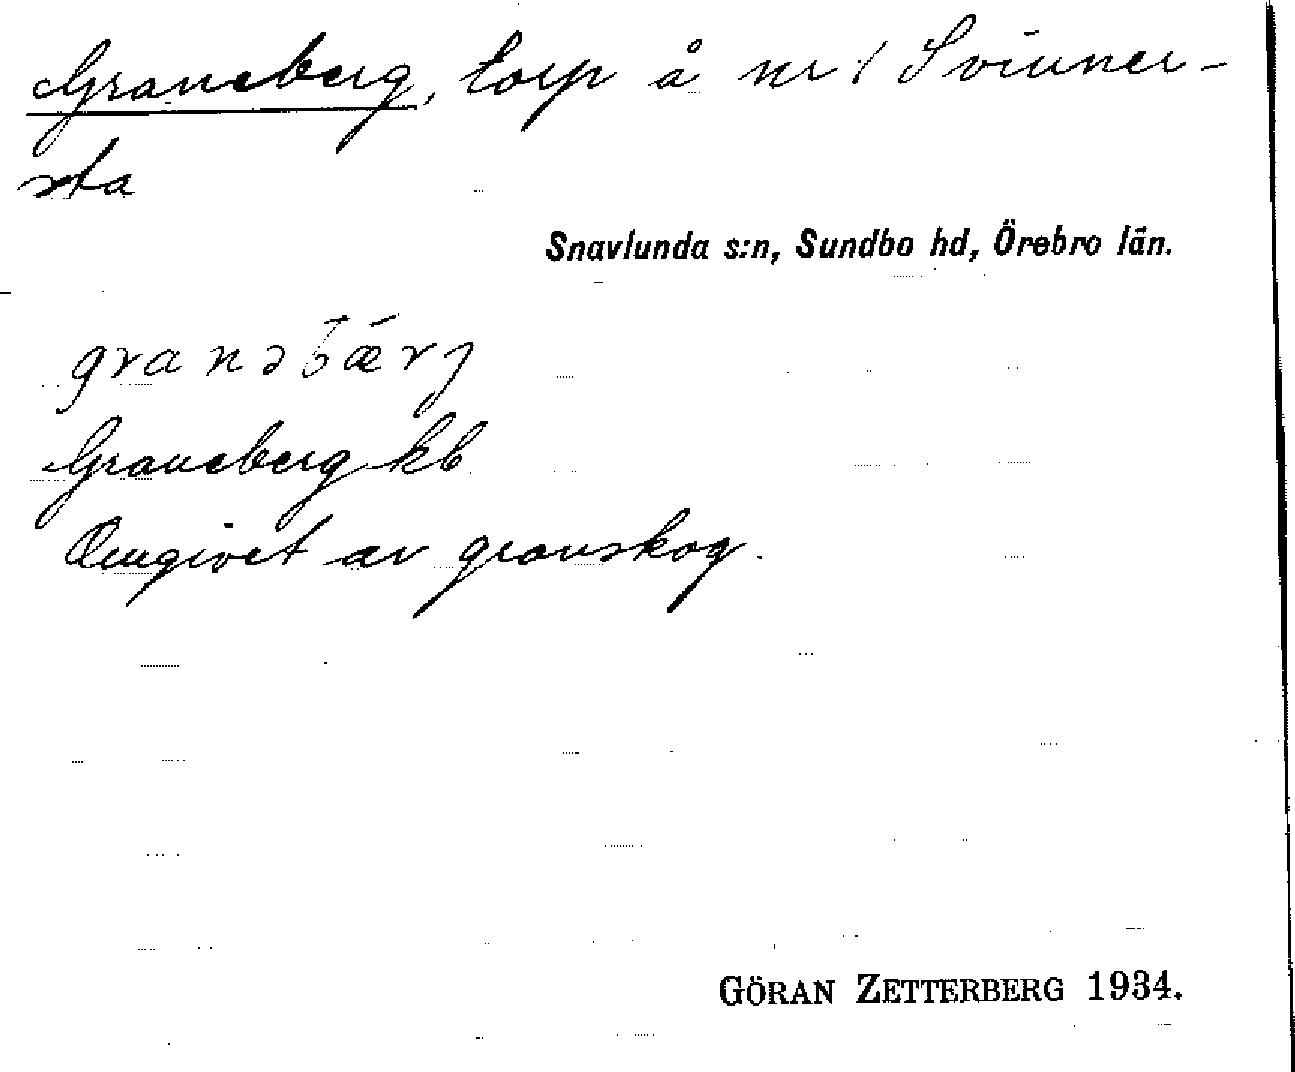 Graneberg, torp å nr 1 Svinner-
sta
Snavlunda s:n, Sundbo hd, Örebro län.
granəbærj
Graneberg kb
Omgivet av granskog.
GÖRAN ZETTERBERG 1934.